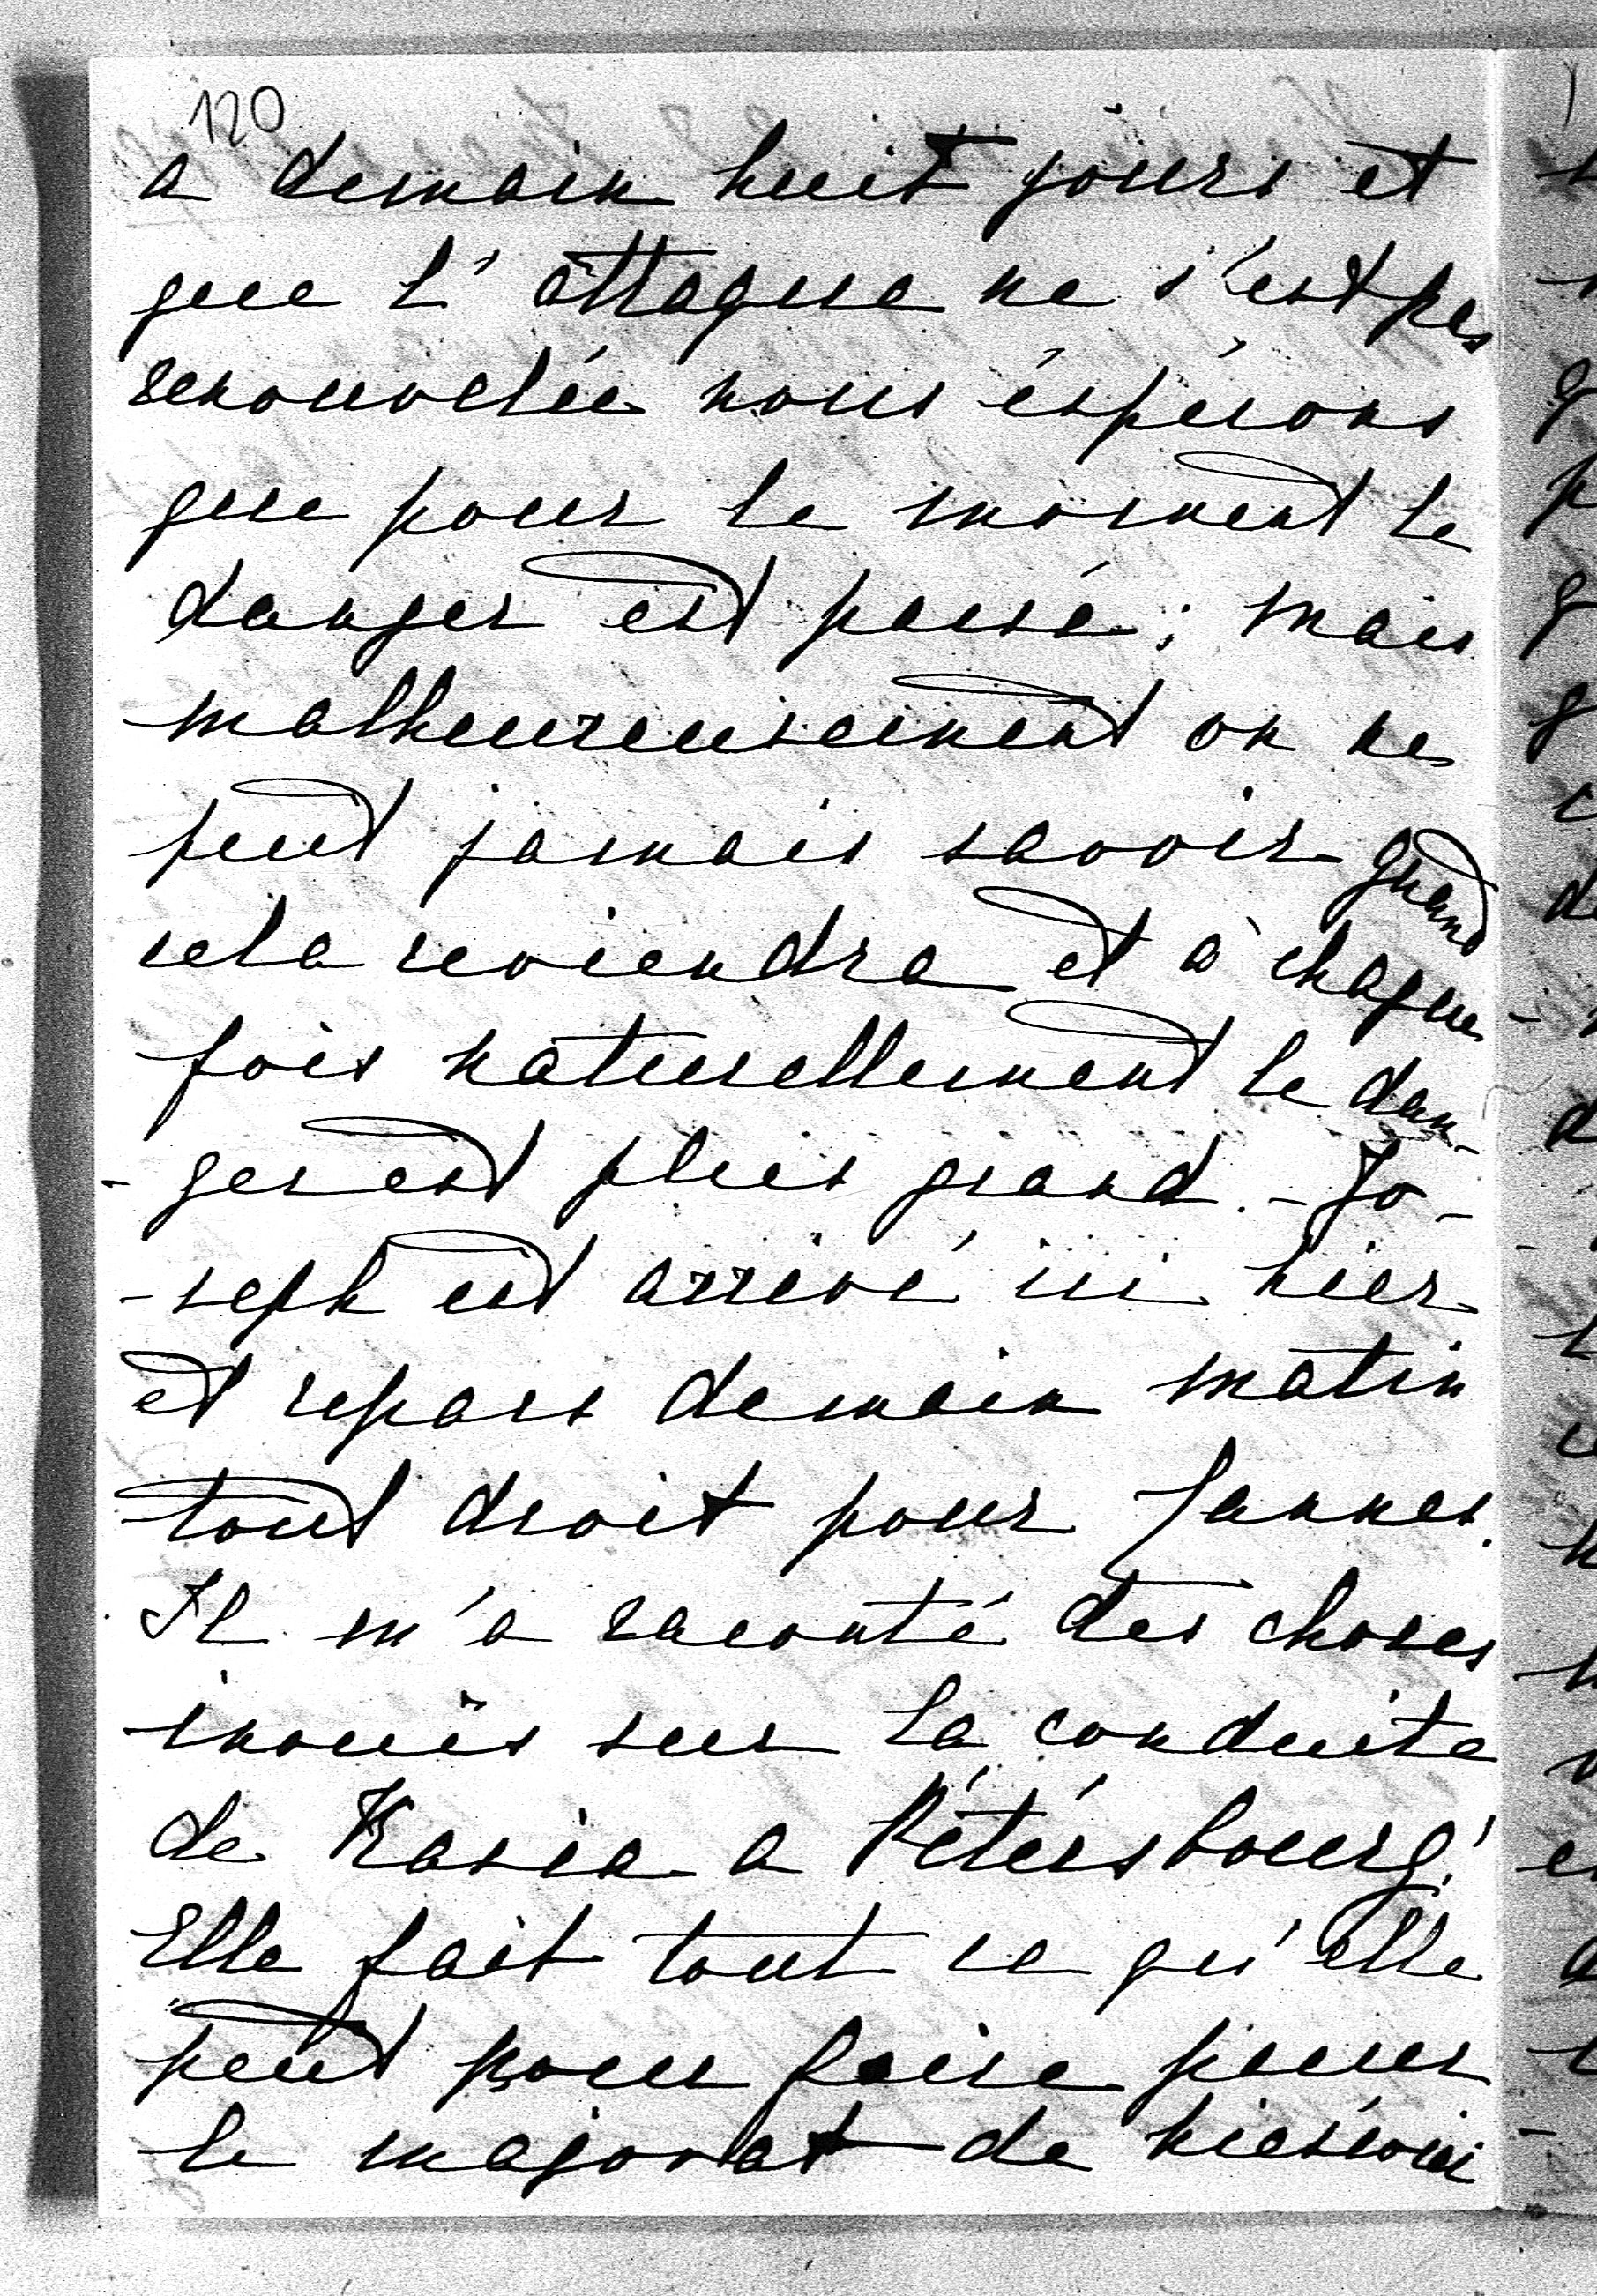 120
a demain huit jours et
que l'attaque ne s'est pas
renouvelée nous éspérons
que pour le moment le
danger est passé; mais
malheureusement on ne
peut jamais savoir quand
cela reviendra et à chaque
fois naturellement le dan-
-ger est plus grand. - Jo-
-seph est arrivé ici hier
et repars demain matin
tout droit pour Cannes.
Il m'a raconté des choses
inouïs sur la conduite
de Kasia a Pétérsbourg!
Elle fait tout ce qu'elle
peut pour faire passer
le majorat de